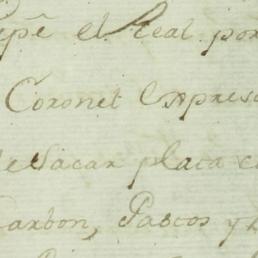 el Real por
Coronel expres
de Sacar plata c
Carbon, Pastos y